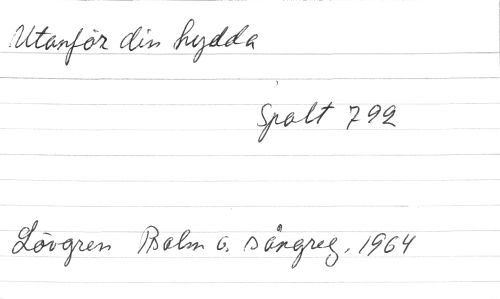 Utanför din hydda
Spalt 792
Lövgren Psalm o. sångreg. 1964